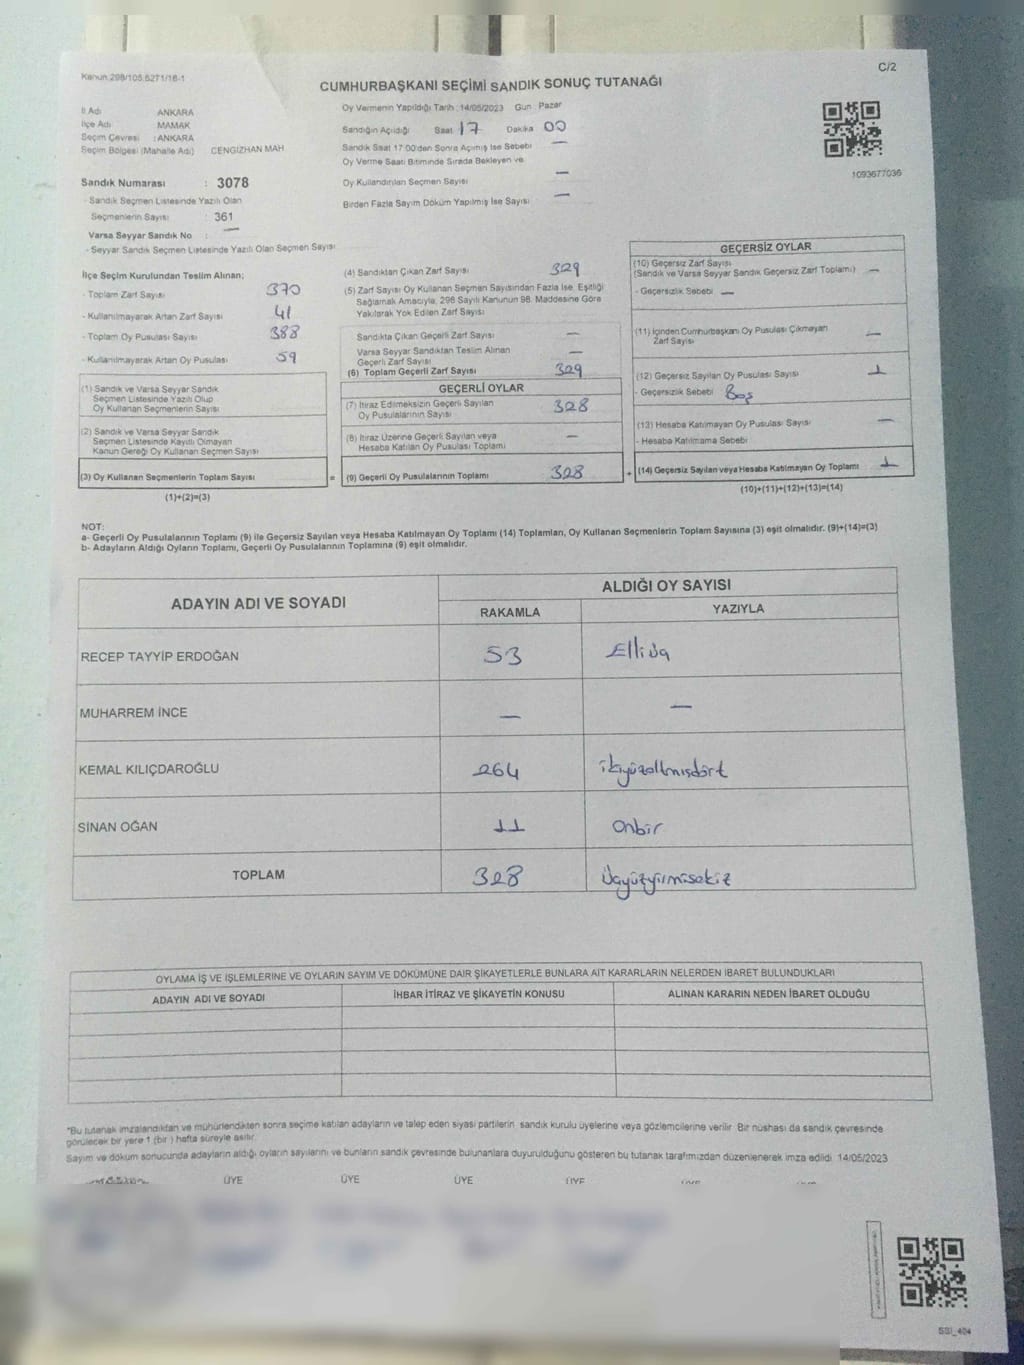 Kanun 298/105,6271/16-1
C/2
CUMHURBAŞKANI SEÇİMİ SANDIK SONUÇ TUTANAĞI
İl Adı ANKARA
İlçe Adı MAMAK
Seçim Çevresi : ANKARA
Seçim Bölgesi (Mahalle Adı) CENGİZHAN MAH
Sandık Numarası : 3078
- Sandık Seçmen Listesinde Yazılı Olan
Seçmenlerin Sayısı : 361
Varsa Seyyar Sandık No : —
- Seyyar Sandık Seçmen Listesinde Yazılı Olan Seçmen Sayısı
Oy Vermenin Yapıldığı Tarih : 14/05/2023 Gün : Pazar
Sandığın Açıldığı Saat 17 Dakika 00
Sandık Saat 17:00'den Sonra Açımış İse Sebebi —
Oy Verme Saati Bitiminde Sırada Bekleyen ve
Oy Kullandırılan Seçmen Sayısı —
Birden Fazla Sayım Döküm Yapılmış İse Sayısı —
1093677036
İlçe Seçim Kurulundan Teslim Alınan;
- Toplam Zarf Sayısı 370
- Kullanılmayarak Artan Zarf Sayısı 41
- Toplam Oy Pusulası Sayısı 388
- Kullanılmayarak Artan Oy Pusulası 59
(1) Sandık ve Varsa Seyyar Sandık
Seçmen Listesinde Yazılı Olup
Oy Kullanan Seçmenlerin Sayısı
(2) Sandık ve Varsa Seyyar Sandık
Seçmen Listesinde Kayıtlı Olmayan
Kanun Gereği Oy Kullanan Seçmen Sayısı
(3) Oy Kullanan Seçmenlerin Toplam Sayısı =
(1)+(2)=(3)
(4) Sandıktan Çıkan Zarf Sayısı 329
(5) Zarf Sayısı Oy Kullanan Seçmen Sayısından Fazla İse, Eşitliği
Sağlamak Amacıyla, 298 Sayılı Kanunun 98. Maddesine Göre
Yakılarak Yok Edilen Zarf Sayısı
Sandıkta Çıkan Geçerli Zarf Sayısı —
Varsa Seyyar Sandıktan Teslim Alınan
Geçerli Zarf Sayısı —
(6) Toplam Geçerli Zarf Sayısı 329
GEÇERLİ OYLAR
(7) İtiraz Edilmeksizin Geçerli Sayılan
Oy Pusulalarının Sayısı 328
(8) İtiraz Üzerine Geçerli Sayılan veya
Hesaba Katılan Oy Pusulası Toplamı —
(9) Geçerli Oy Pusulalarının Toplamı 328 +
GEÇERSİZ OYLAR
(10) Geçersiz Zarf Sayısı
(Sandık ve Varsa Seyyar Sandık Geçersiz Zarf Toplamı) —
- Geçersizlik Sebebi —
(11) İçinden Cumhurbaşkanı Oy Pusulası Çıkmayan
Zarf Sayısı —
(12) Geçersiz Sayılan Oy Pusulası Sayısı 1
- Geçersizlik Sebebi Boş
(13) Hesaba Katılmayan Oy Pusulası Sayısı —
- Hesaba Katılmama Sebebi
(14) Geçersiz Sayılan veya Hesaba Katılmayan Oy Toplamı 1
(10)+(11)+(12)+(13)=(14)
NOT:
a- Geçerli Oy Pusulalarının Toplamı (9) ile Geçersiz Sayılan veya Hesaba Katılmayan Oy Toplamı (14) Toplamları, Oy Kullanan Seçmenlerin Toplam Sayısına (3) eşit olmalıdır. (9)+(14)=(3)
b- Adayların Aldığı Oyların Toplamı, Geçerli Oy Pusulalarının Toplamına (9) eşit olmalıdır.
ADAYIN ADI VE SOYADI ALDIĞI OY SAYISI
RAKAMLA YAZIYLA
RECEP TAYYİP ERDOĞAN 53
MUHARREM İNCE — —
KEMAL KILIÇDAROĞLU 264 ikiyüzaltmışdört
SİNAN OĞAN 11 Onbir
TOPLAM 328 Üçyüzyirmisekiz
OYLAMA İŞ VE İŞLEMLERİNE VE OYLARIN SAYIM VE DÖKÜMÜNE DAİR ŞİKAYETLERLE BUNLARA AİT KARARLARIN NELERDEN İBARET BULUNDUKLARI
ADAYIN ADI VE SOYADI İHBAR İTİRAZ VE ŞİKAYETİN KONUSU ALINAN KARARIN NEDEN İBARET OLDUĞU
*Bu tutanak imzalandıktan ve mühürlendikten sonra seçime katılan adayların ve talep eden siyasi partilerin sandık kurulu üyelerine veya gözlemcilerine verilir. Bir nüshası da sandık çevresinde
görülecek bir yere 1 (bir ) hafta süreyle asılır.
Sayım ve döküm sonucunda adayların aldığı oyların sayılarını ve bunların sandık çevresinde bulunanlara duyurulduğunu gösteren bu tutanak tarafımızdan düzenlenerek imza edildi. 14/05/2023
ÜYE ÜYE ÜYE ÜYE
SSI_404